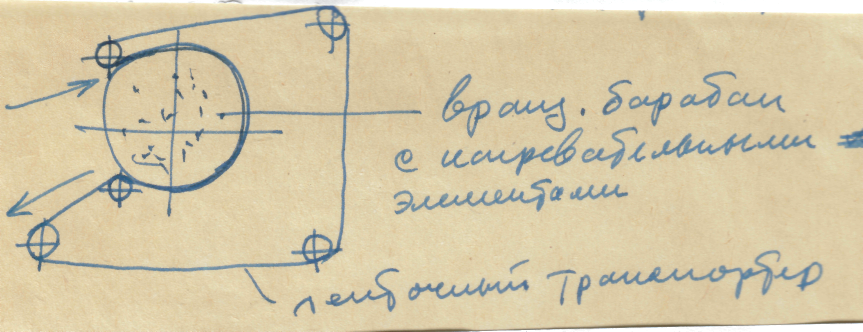 вращ. барабан
с нагревательными
элементами
ленточный транспортер